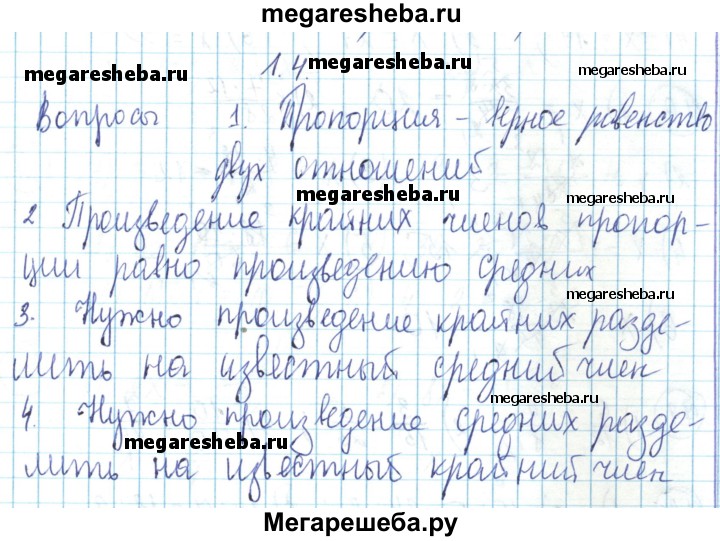 megaresheba.ru
megaresheba.ru 1.4. megaresheba.ru megaresheba.ru
Вопросы 1. Пропорция - верное равенство
двух отношений
megaresheba.ru megaresheba.ru
2 Произведение крайних членов пропор-
ции равно произведению средних
megaresheba.ru
3. Нужно произведение крайних разде-
лить на известный средний член
megaresheba.ru
4. Нужно произведение средних разде-
megaresheba.ru
лить на известный крайний член
Мегарешеба.ру